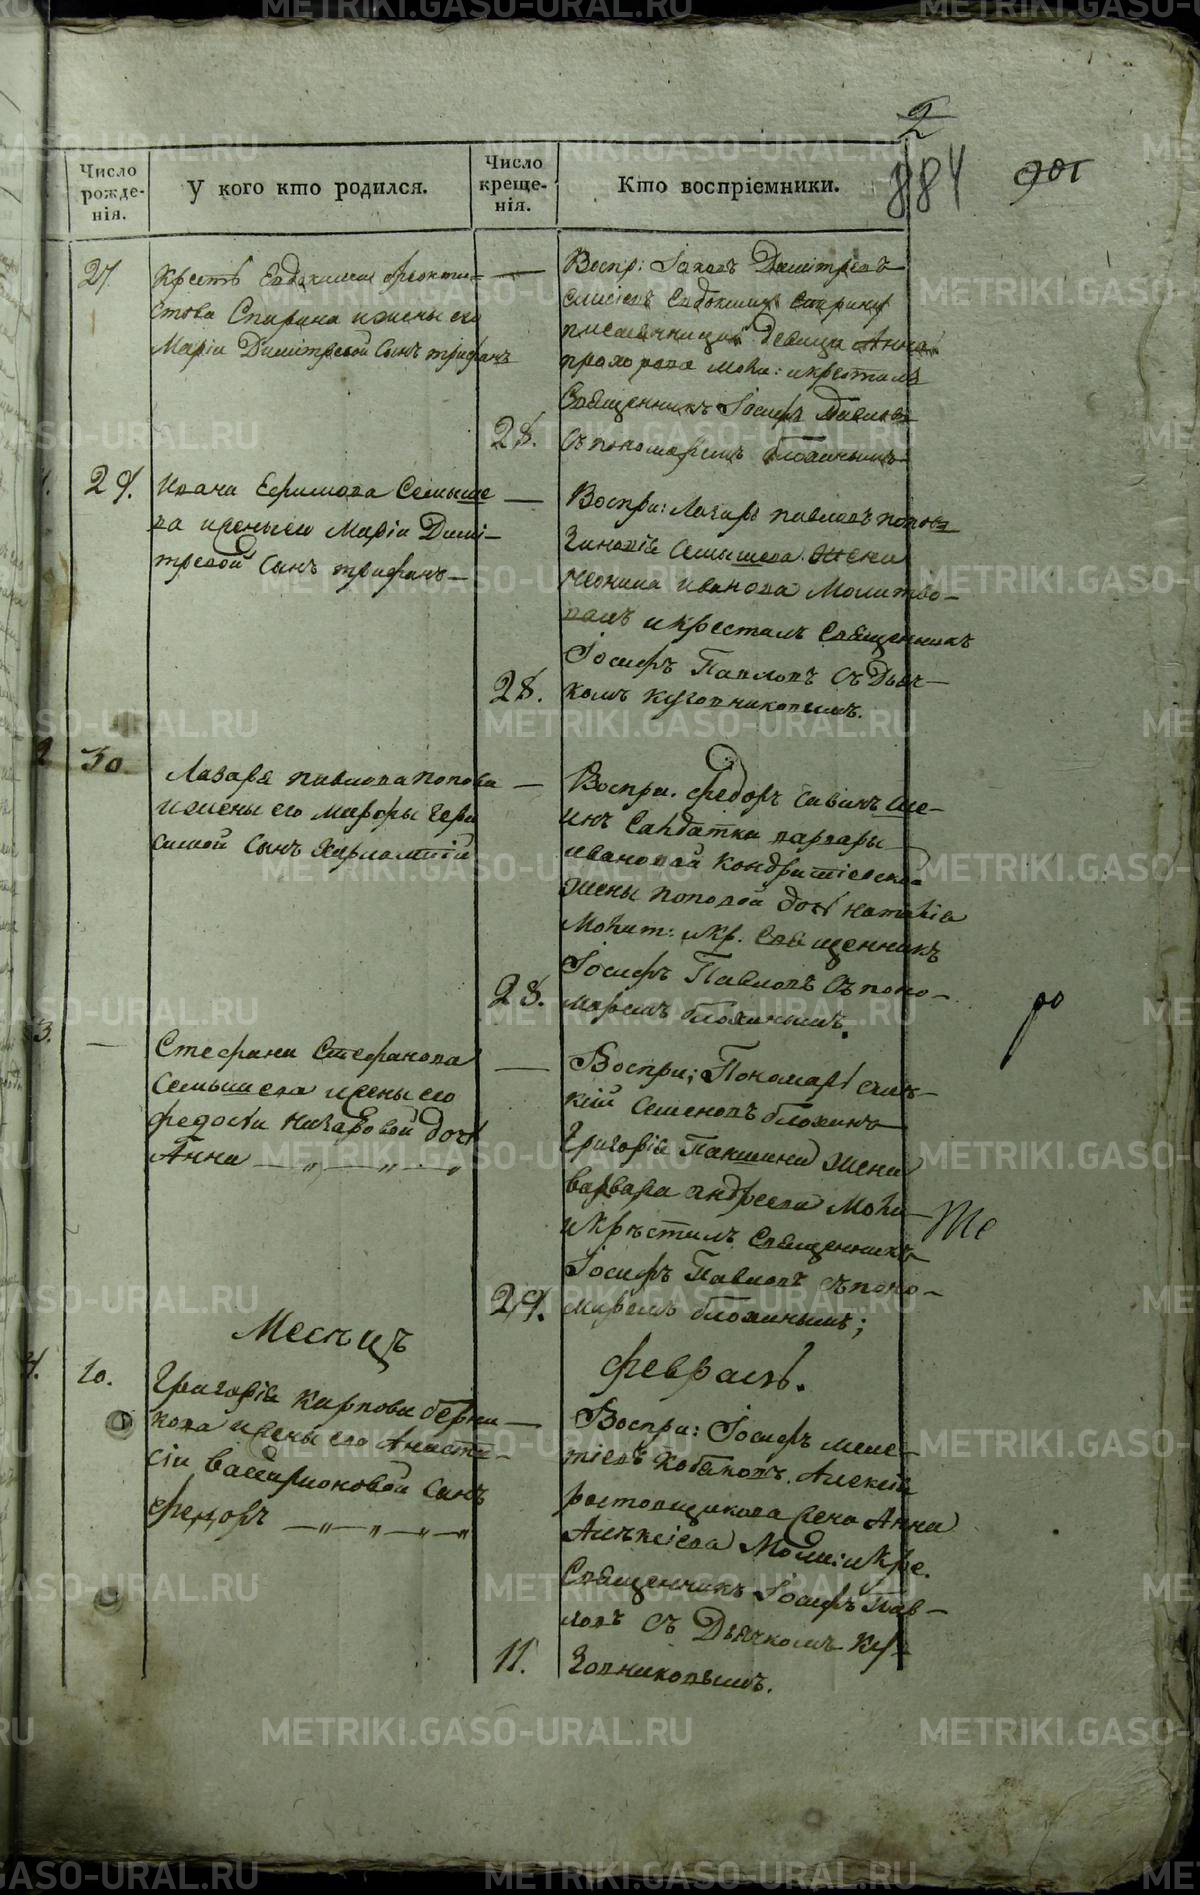 2
884
901
Число рожде-нія.
У кого кто родился.
Число креще-нія.
Кто воспріемники.
27.
Крестъ Евдокима Феокти-
стова Спирина и жены его
Маріи Димітревой Сынъ трифанъ
28.
Воспр: Іаковъ Димітревъ
девица Анна
прохорова моли: и крестилъ
Священникъ Іосифъ Павловъ
Съ пономаремъ блохинымъ
29.
Ивана Ефимова Семыше
ва и жены его Маріи Дими-
тревой Сынъ трифанъ
28.
Воспри: Лазарь павловъ поповъ
Зиновія Семышева Жена
иванова Молитво-
валъ и крестилъ Священникъ
Іосифъ Павловъ Съ Дьяч-
комъ Куговниковымъ.
2
30
Лазаря павлова попова
и жены его марфы Гера
симовой Сынъ Харлампій
28.
Воспри. федоръ Савинъ Ше-
инъ Салдатки варвары
ивановой Кондратіевской
жены поповой дочь наталія
Молит: и кр. Священникъ
Іосифъ Павловъ Съ поно-
маремъ блохинымъ.
ро
3.
Стефана Стефанова
Семышева и жены его
федосьи Назаровой дочь
Анна
29.
Воспри; Пономарь
Семеновъ блохинъ
Григорія Пакшина Жена
варвара андреева Моли
и крѣстилъ Священникъ
Іосифъ Павловъ Съ поно-
маремъ блохинымъ;
Те
Месяцъ
февраль.
4.
10.
Григорія Карпова берни
кова и жены его Анаста-
сіи Василріоновой Сынъ
Федоръ
11.
Воспри: Іосифъ меле-
тіевъ Кобяковъ. Алексія
ростовщикова жена Анна
Алѣксіева Моли: и кре.
Священникъ Іосифъ Пав-
ловъ Съ Дьячкомъ Ку-
говниковымъ.
METRIKI.GASO-URAL.RU